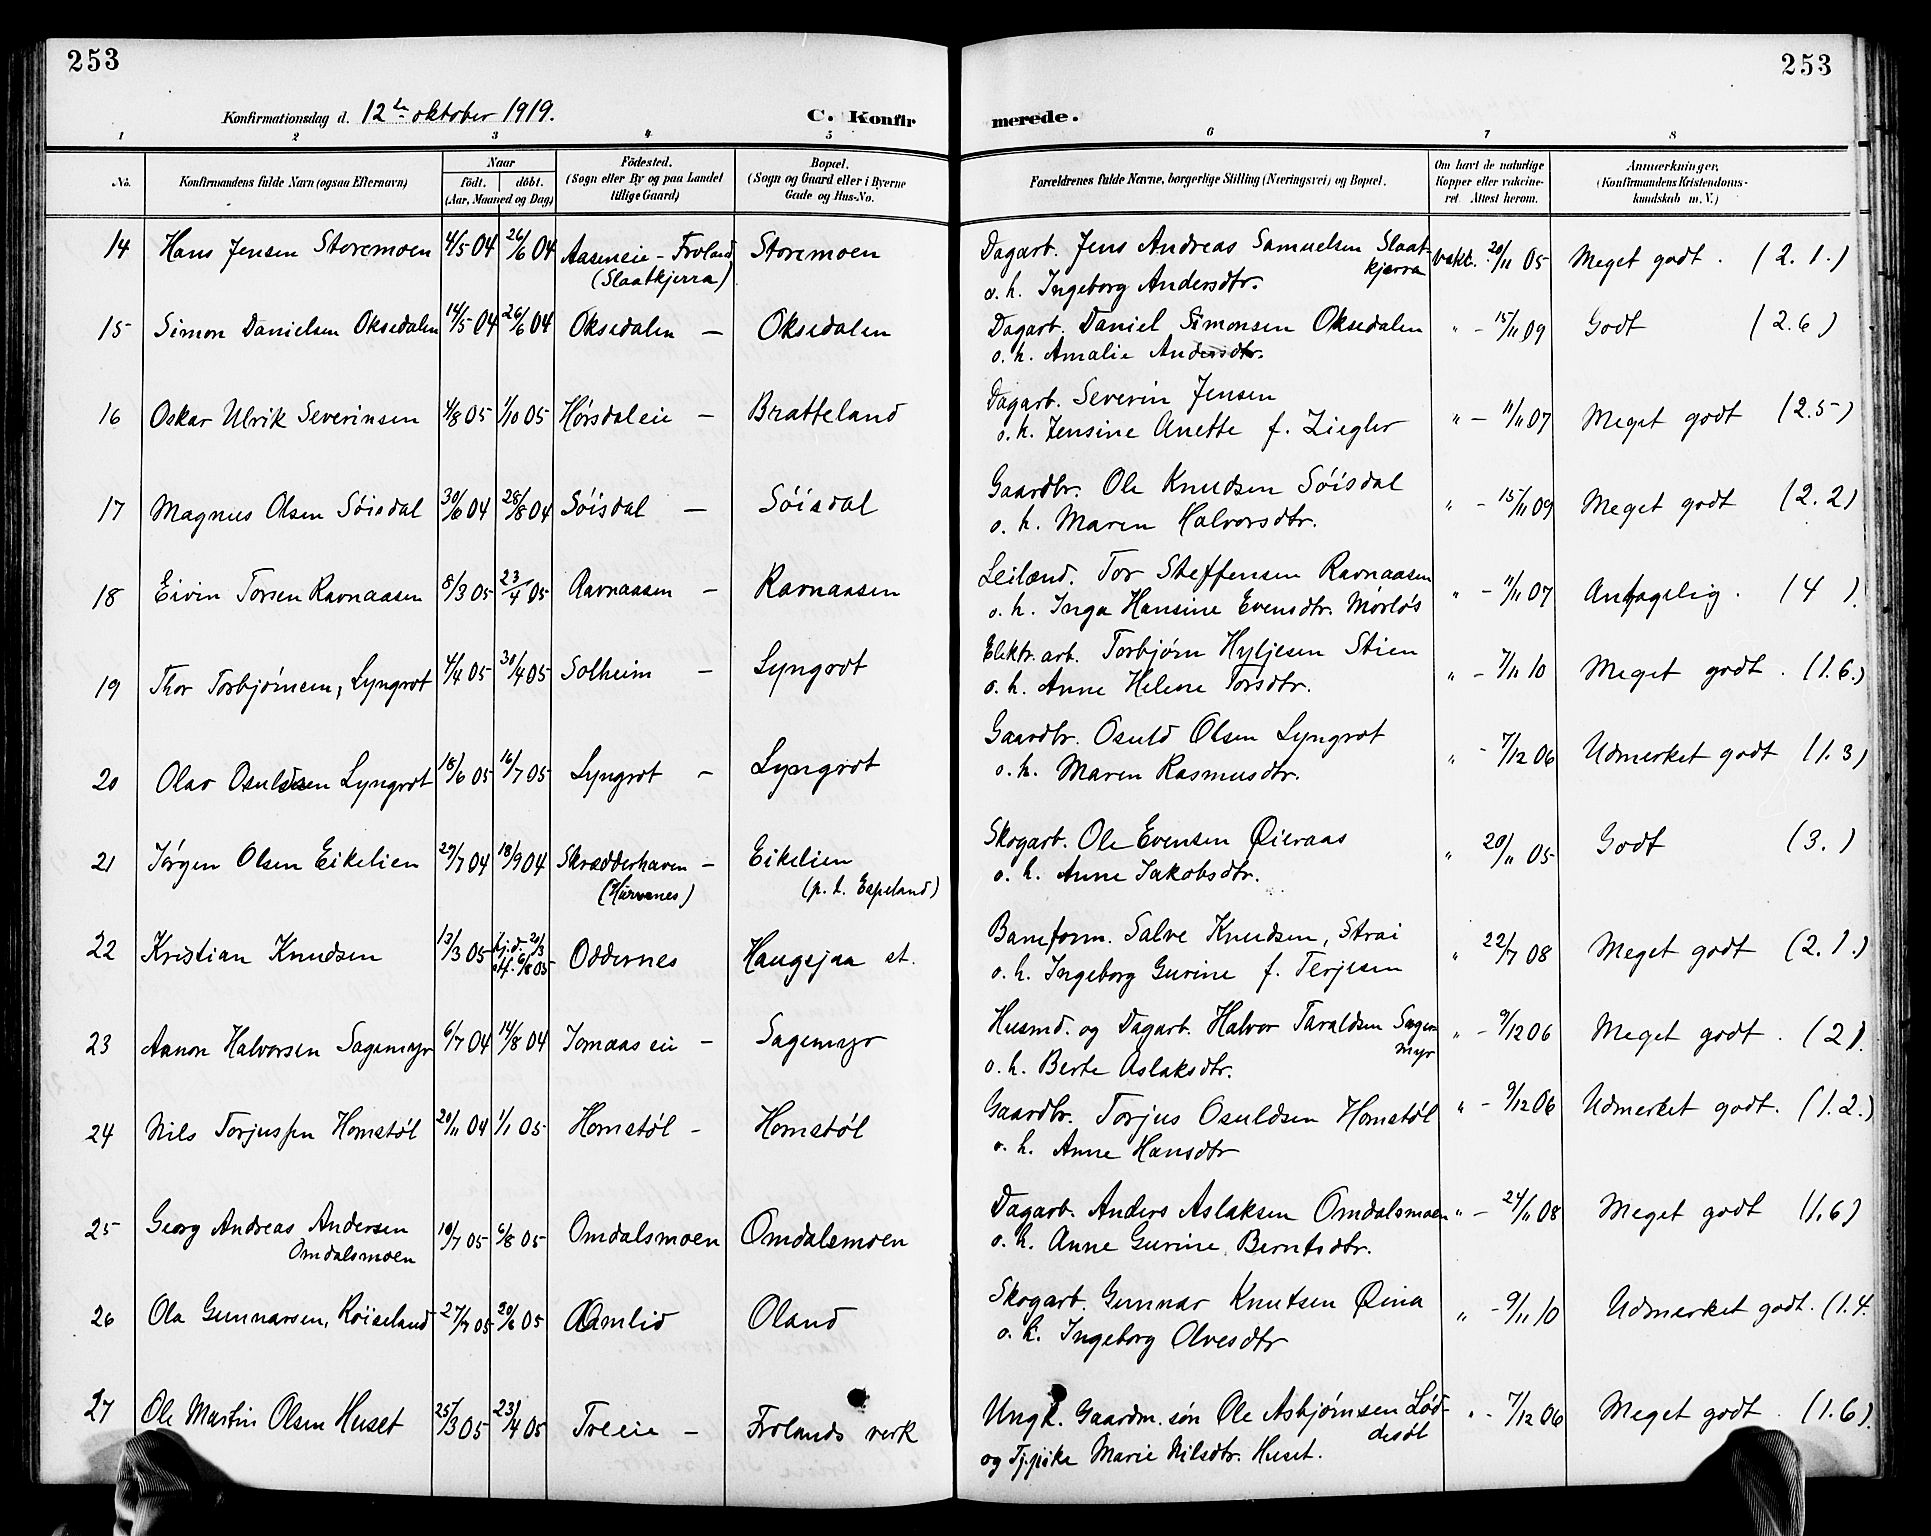 253
253
Konfirmationsdag d. 12te oktober 1919.
C. Konfir
merede.
1 2 3 4 5 6 7 8
No.
Konfirmandens fulde Navn (ogsaa Efternavn)
Naar
født. døbt.
(Aar, Maaned og Dag)
Fødested.
(Sogn eller By og paa Landet
tillige Gaard)
Bopæl.
(Sogn og Gaard eller i Byerne
Gade og Hus-No.
Forældrenes fulde Navne, borgerlige Stilling (Næringsvei) og Bopæl.
Om havt de naturlige
Kopper eller vakcine-
ret Attest herom.
Anmærkninger,
(Konfirmandens Kristendoms-
kundskab m. V.)
14 Hans Jensen Storemoen 4/5 04 26/6 04 Aasmeie - Froland Storemoen Dagarb. Jens Andreas Samuelsen Slaat- vakc. 20/11 05 Meget godt . (2. 1.)
(Slaatkjerra) kjerra
o. h. Ingeborg Andersdtr.
15 Simon Danielsen Oksedalen 14/5 04 26/6 04 Oksedalen — Oksedalen Dagarb. Daniel Simonsen Oksedalen " - 15/11 09 Godt (2.6)
o. h. Amalie Andersdtr.
16 Oskar Ulrik Severinsen 4/8 05 1/10 05 Hørsdaleie — Bratteland Dagarb. Severin Jensen " - 11/11 07 Meget godt (2.5)
o. h. Jensine Anette f. Ziegler
17 Magnus Olsen Søisdal 30/6 04 28/8 04 Søisdal — Søisdal Gaardbr. Ole Knudsen Søisdal " - 15/11 09 Meget godt (2. 2)
o. h. Maren Halvorsdtr.
18 Eivin Torsen Ravnaasen 8/3 05 23/4 05 Ravnaasen — Ravnaasen Leilænd. Tor Steffensen Ravnaasen " - 11/11 07 Antagelig . (4 ).
o. h. Inga Hansine Evensdtr. Mørløs
19 Thor Torbjørnsen, Lyngrot 4/4 05 30/4 05 Solheim — Lyngrot Elektr. arb. Torbjørn Hyljesen Stien " - 7/11 10 Meget godt . (1. 6.)
o. h. Anne Helene Torsdtr.
20 Olav Osuldsen Lyngrot 18/6 05 16/7 05 Lyngrot — Lyngrot Gaardbr. Osuld Olsen Lyngrot " - 7/12 06 Udmerket godt (1. 3)
o. h. Maren Rasmusdtr.
21 Jørgen Olsen Eikelien 29/7 04 18/9 04 Skrædderhaven — Eikelien Skogarb. Ole Evensen Øieraas " 20/11 05 Godt (3. )
(Hurvenes) (p. t. Espeland) o. h. Anne Jakobsdtr.
22 Kristian Knudsen 13/3 05 hj.d. 20/3 Oddernes Haugsjaa st. Baneform. Salve Knudsen, Strai " 22/7 08 Meget godt (2. 1.)
stf. 6/8 05 o. h. Ingeborg Gurine f. Terjesen
23 Aanon Halvorsen Sagemyr 6/7 04 14/8 04 Jomaas eie — Sagemyr Husmd. og Dagarb. Halvor Taraldsen Sage- " - 9/12 06 Meget godt . (2).
myr
o. h. Berte Aslaksdtr.
24 Nils Torjussen Homstøl 20/11 04 1/1 05 Homstøl - Homstøl Gaardbr. Torjus Osuldsen Homstøl " - 9/12 06 Udmerket godt. (1. 2.)
o. h. Anne Hansdtr
25 Georg Andreas Andersen 19/7 05 6/8 05 Omdalsmoen Omdalsmoen Dagarb. Anders Aslaksen Omdalsmoen " - 24/11 08 Meget godt (1.6)
Omdalsmoen o. h. Anne Gurine Berntsdtr.
26 Ola Gunnarsen, Røiseland 27/4 05 20/6 05 Aamlid Oland Skogarb. Gunnar Knutsen Øina " - 9/11 10 Udmerket godt. (1.4.
o. h. Ingeborg Olvesdtr
27 Ole Martin Olsen Huset 25/3 05 23/4 05 Treeie — Frolands verk Ungk. Gaardm. søn Ole Asbjørnsen Lød- " - 7/12 06 Meget godt . (1.6).
desøl
og Tj.pike Marie Nilsdtr. Huset.